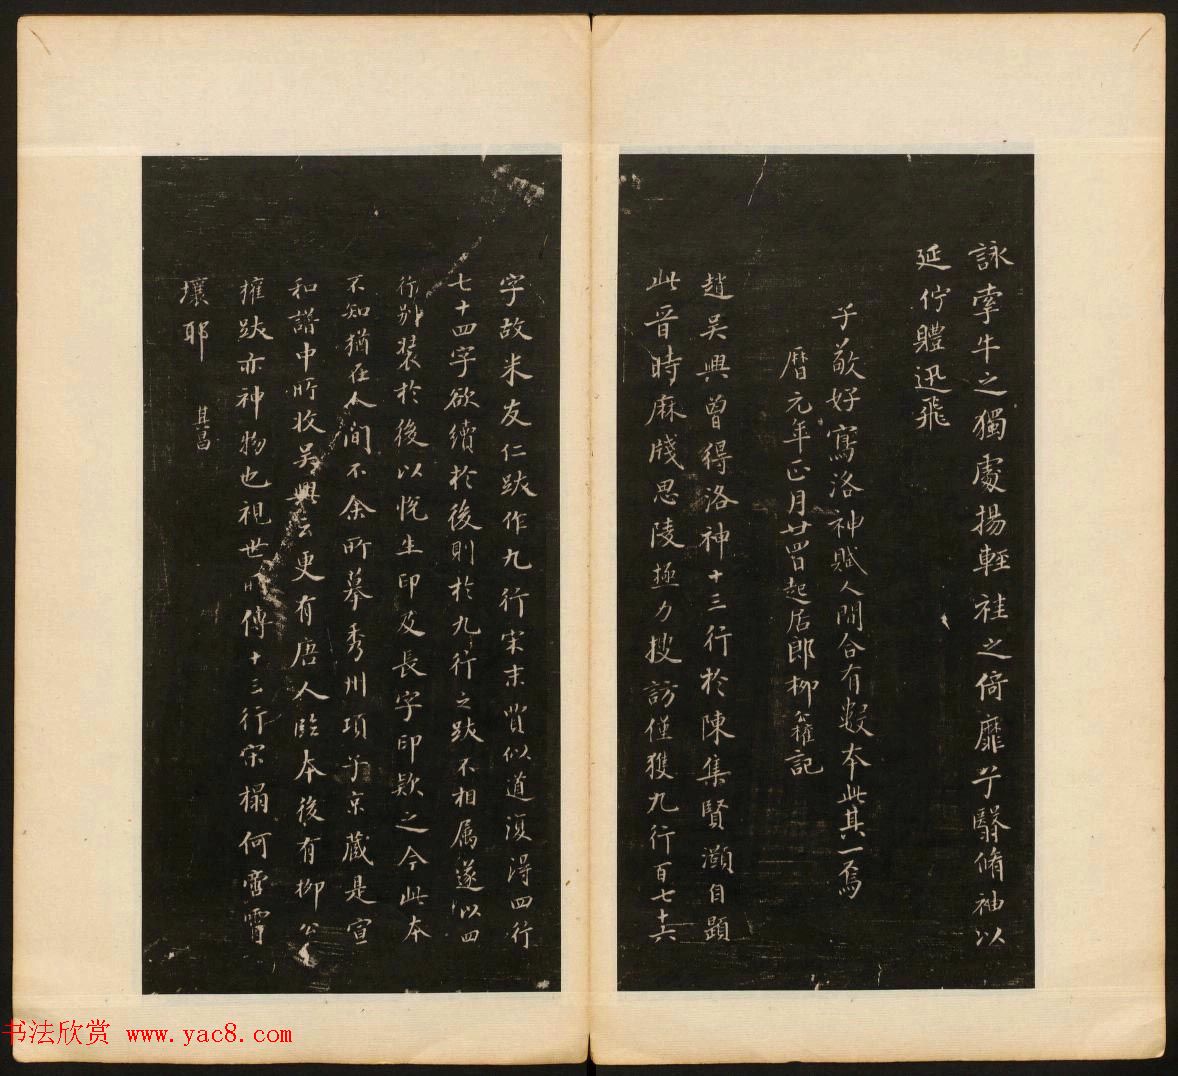 詠牽牛之獨處揚輕袿之倚靡兮翳脩袖以
延佇體迅飛
子敬好寫洛神賦人間合有數本此其一焉
曆元年正月廿四日起居郎柳公權記
趙吳興曾得洛神十三行於陳集賢灝自題
此晉時麻牋思陵極力搜訪僅獲九行百七十六
字故米友仁跋作九行宋末賈似道復得四行
七十四字欲續於後則於九行之跋不相属遂以四
行別裝於後以悅生印及長字印款之今此本
不知猶在人間不余所摹秀州項子京藏是宣
和譜中所收吳興云更有唐人臨本後有柳公
權跋亦神物也視世所傳十三行宋搨何啻霄
壤耶
其昌
书法欣赏 www.yac8.com